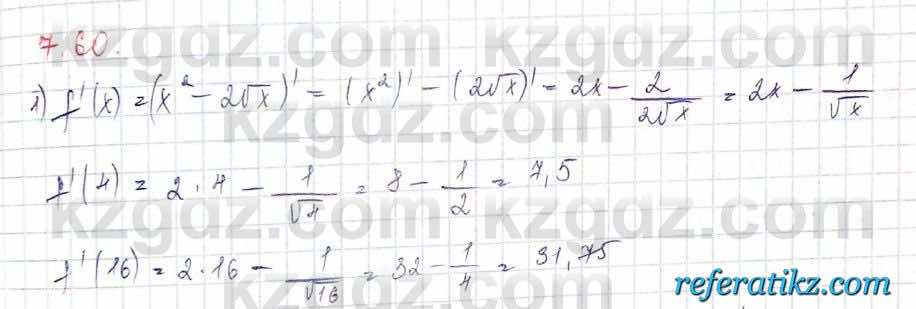 7.60.
1) f'(x) = (x² - 2√x)' = (x²)' - (2√x)' = 2x - 2/2√x = 2x - 1/√x
f'(4) = 2·4 - 1/√4 = 8 - 1/2 = 7,5
f'(16) = 2·16 - 1/√16 = 32 - 1/4 = 31,75
kzgdz.com
kzgdz.com
kzgdz.com
kzgdz.com
referatikz.com